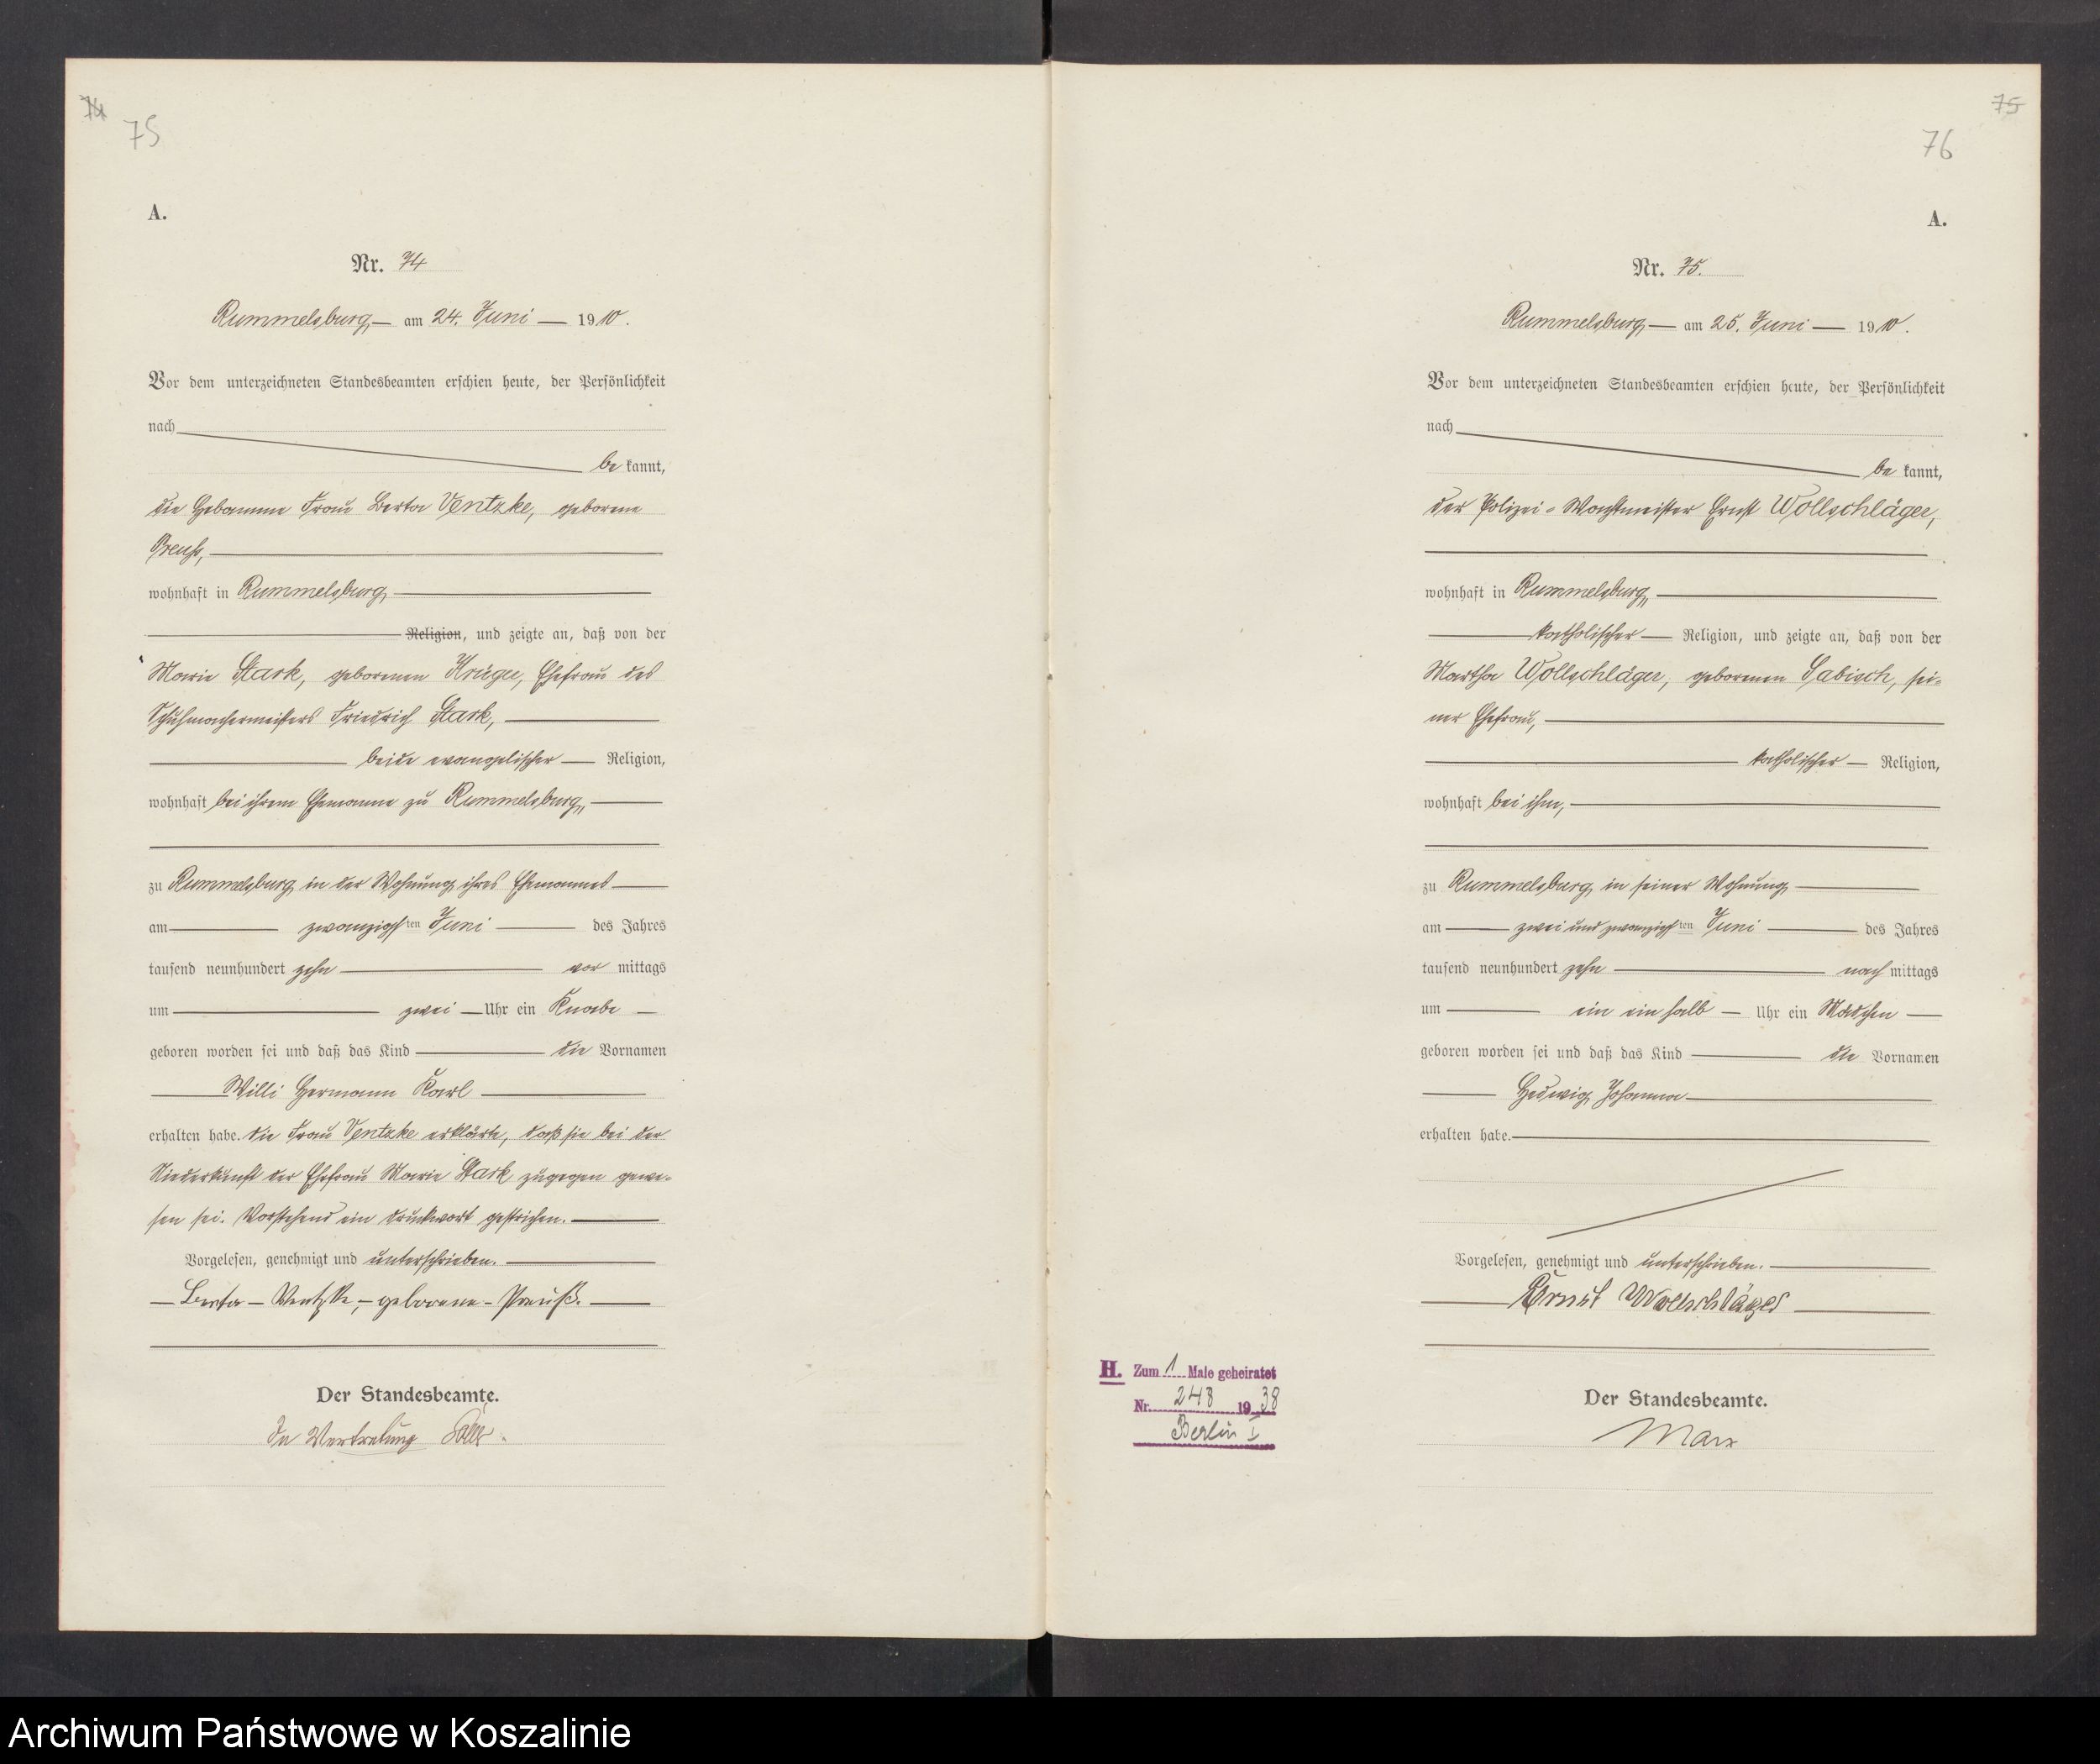 74
75
A.
Nr. 74
Rummelsburg, am 24. Juni 1910.
Vor dem unterzeichneten Standesbeamten erschien heute, der Persönlichkeit
nach
be kannt,
die Hebamme Frau Berta Ventzke, geborene
Preuß,
wohnhaft in Rummelsburg,
Religion, und zeigte an, daß von der
Marie Stark, geborenen Krüger, Ehefrau des
Schuhmachermeisters Friedrich Stark,
beide evangelischer Religion,
wohnhaft bei ihrem Ehemanne zu Rummelsburg,
zu Rummelsburg, in der Wohnung ihres Ehemannes
am zwanzigsten Juni des Jahres
tausend neunhundert zehn vor mittags
um zwei Uhr ein Knabe
geboren worden sei und daß das Kind die Vornamen
Willi Hermann Karl
erhalten habe. Die Frau Ventzke erklärte, daß sie bei der
Niederkunft der Ehefrau Marie Stark zugegen gewe-
sen sei. Vorstehend ein Druckwort gestrichen.
Vorgelesen, genehmigt und unterschrieben.
Berta Ventzke, geborene Preuß.
Der Standesbeamte.
In Vertretung
75
76
A.
Nr. 75.
Rummelsburg, am 25. Juni 1910.
Vor dem unterzeichneten Standesbeamten erschien heute, der Persönlichkeit
nach
be kannt,
der Polizei-Wachtmeister Ernst Wollschläger,
wohnhaft in Rummelsburg,
katholischer Religion, und zeigte an, daß von der
Martha Wollschläger, geborenen Sabisch, sei-
ner Ehefrau,
katholischer Religion,
wohnhaft bei ihm,
zu Rummelsburg, in seiner Wohnung,
am zwei und zwanzigsten Juni des Jahres
tausend neunhundert zehn nach mittags
um ein ein halb Uhr ein Mädchen
geboren worden sei und daß das Kind die Vornamen
Hedwig Johanna
erhalten habe.
Vorgelesen, genehmigt und unterschrieben.
Ernst Wollschläger
Der Standesbeamte.
Marx
H. Zum 1 Male geheiratet
Nr. 248 1938
Berlin I
Archiwum Państwowe w Koszalinie